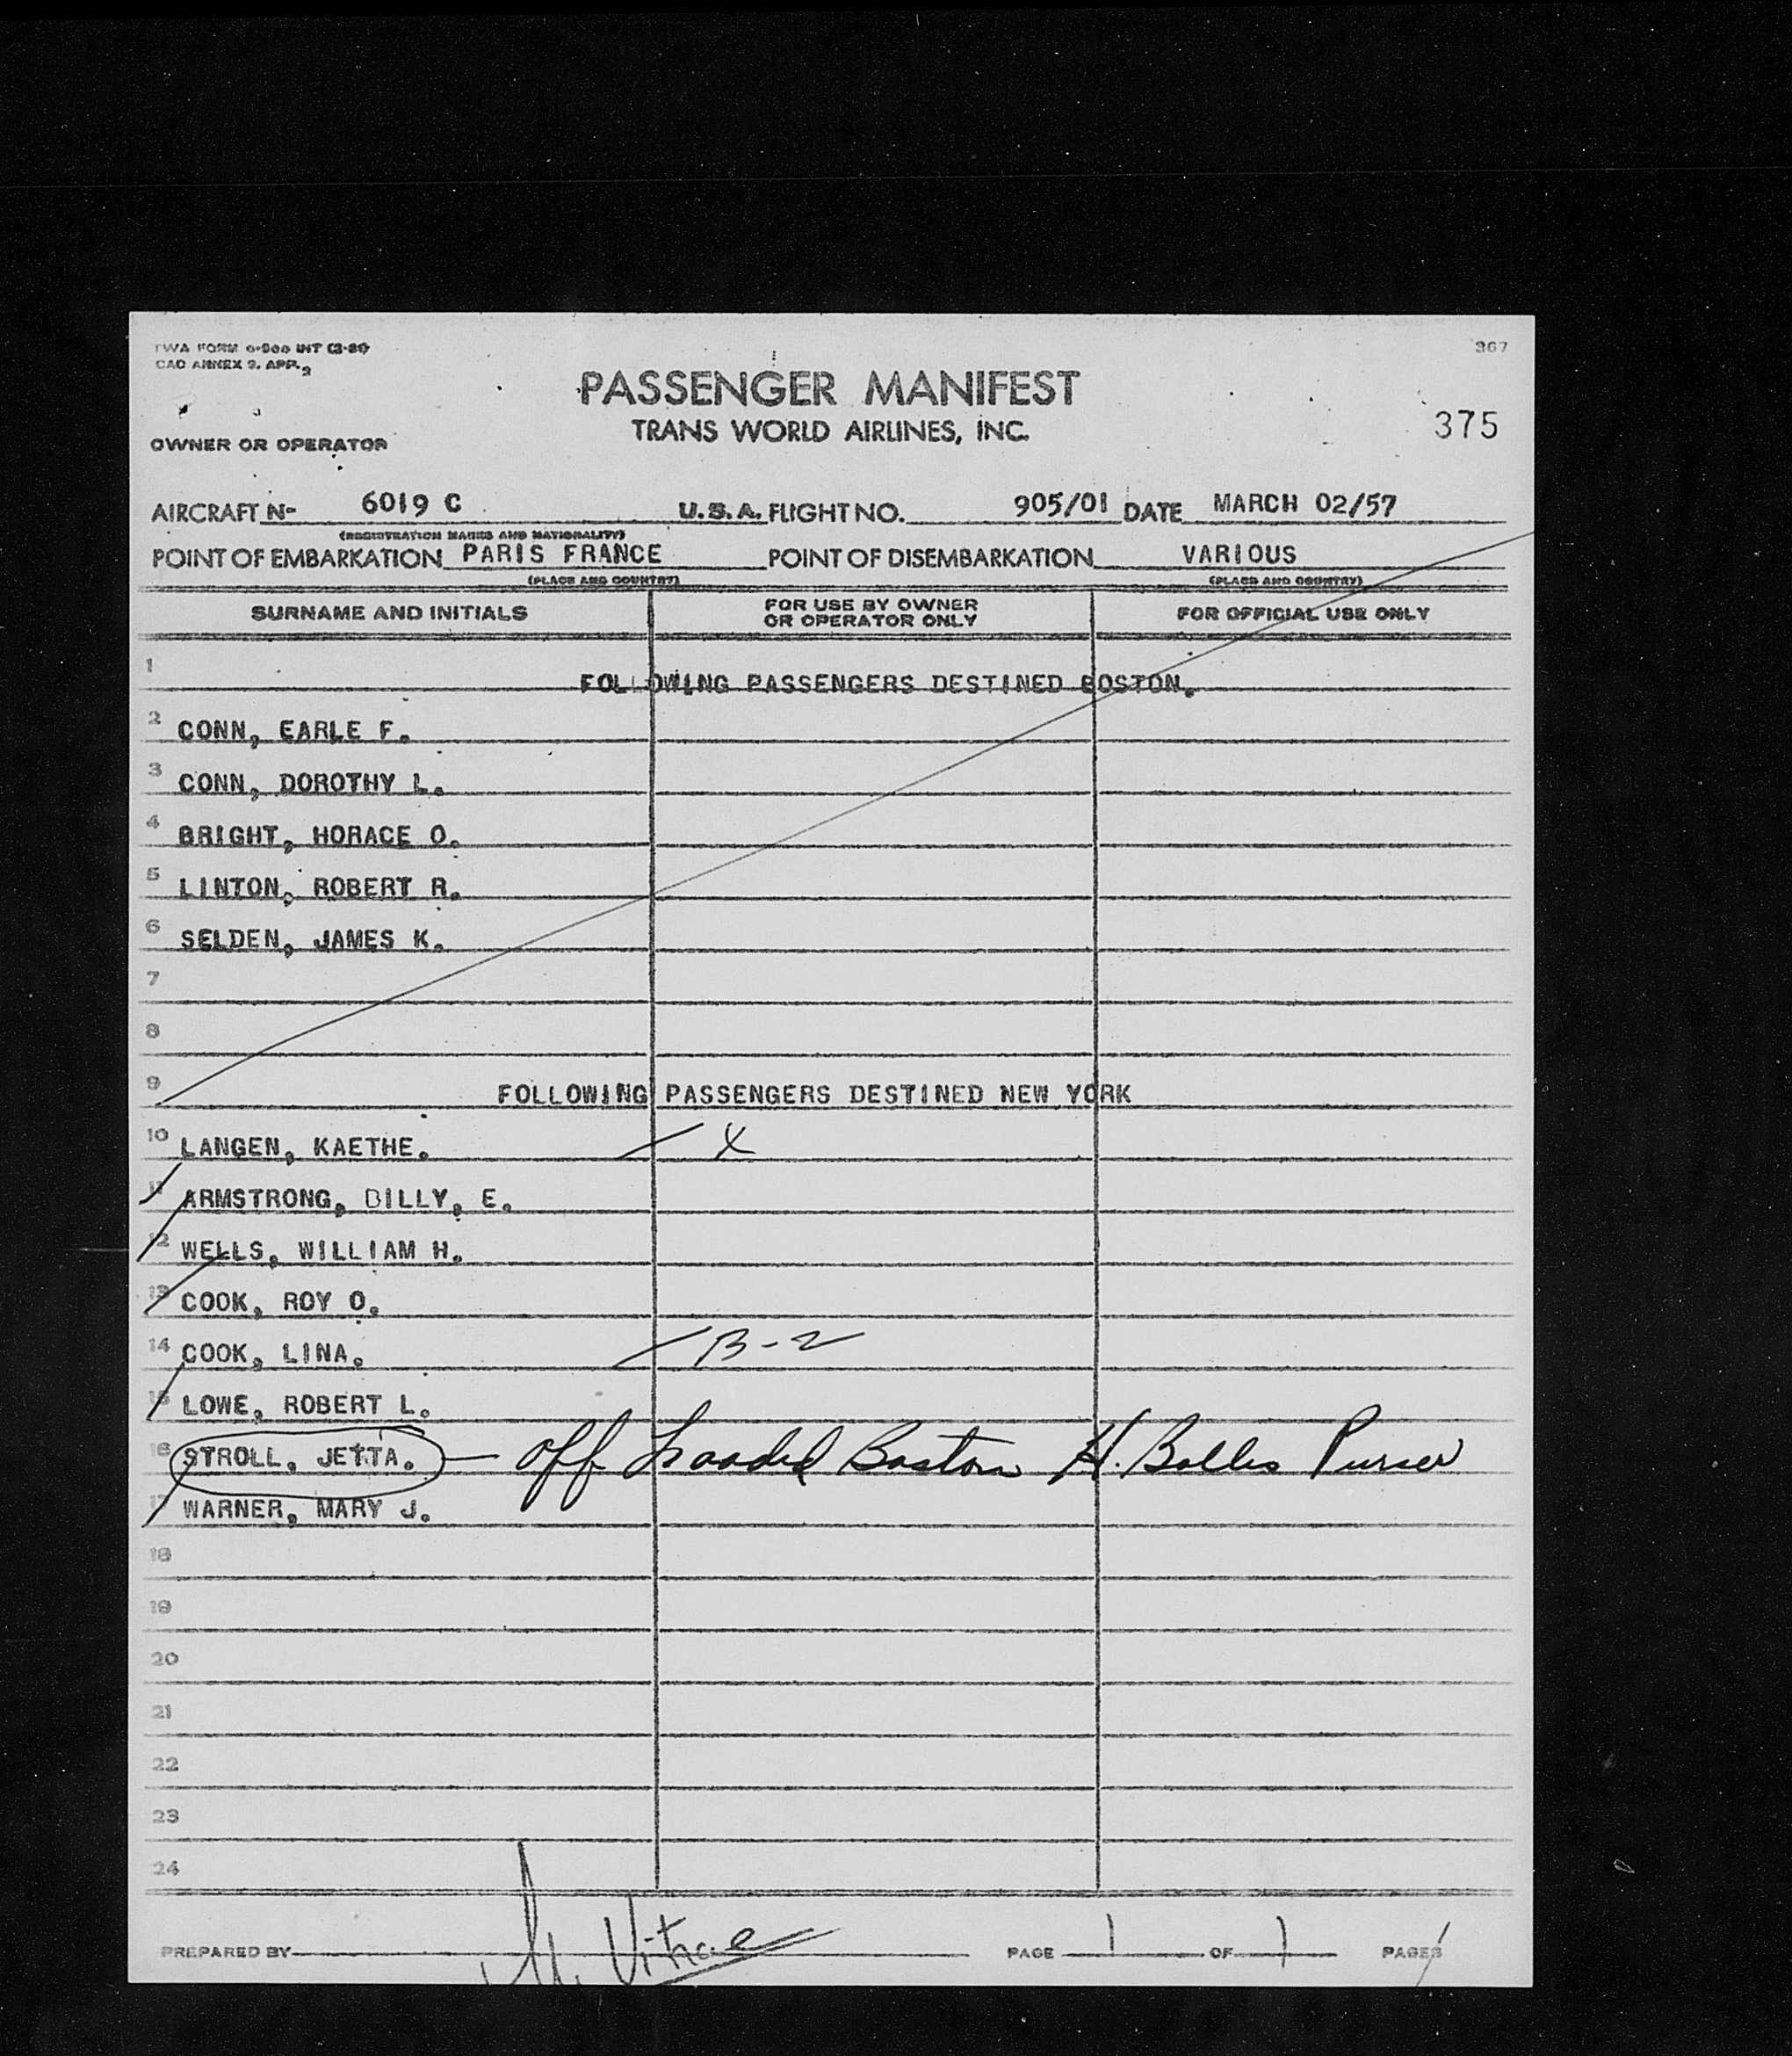 TWA FORM 0-500 INT (3-51)
367
CAO ANNEX 9. APP. 2
PASSENGER MANIFEST
TRANS WORLD AIRLINES, INC.
375
OWNER OR OPERATOR
AIRCRAFT N- 6019 C U.S.A. FLIGHT NO. 905/01 DATE MARCH 02/57
(REGISTRATION MARKS AND NATIONALITY)
POINT OF EMBARKATION PARIS FRANCE POINT OF DISEMBARKATION VARIOUS
(PLACE AND COUNTRY) (PLACE AND COUNTRY)
SURNAME AND INITIALS FOR USE BY OWNER OR OPERATOR ONLY FOR OFFICIAL USE ONLY
1 FOLLOWING PASSENGERS DESTINED BOSTON.
2 CONN, EARLE F.
3 CONN, DOROTHY L.
4 BRIGHT, HORACE O.
5 LINTON, ROBERT R.
6 SELDEN, JAMES K.
7
8
9 FOLLOWING PASSENGERS DESTINED NEW YORK
10 LANGEN, KAETHE. X
11 ARMSTRONG, BILLY, E.
12 WELLS, WILLIAM H.
13 COOK, ROY O.
14 COOK, LINA. B-2
15 LOWE, ROBERT L.
16 STROLL, JETTA. — off Loaded Boston H. Bolles Purser
17 WARNER, MARY J.
18
19
20
21
22
23
24
PREPARED BY PAGE 1 OF 1 PAGES